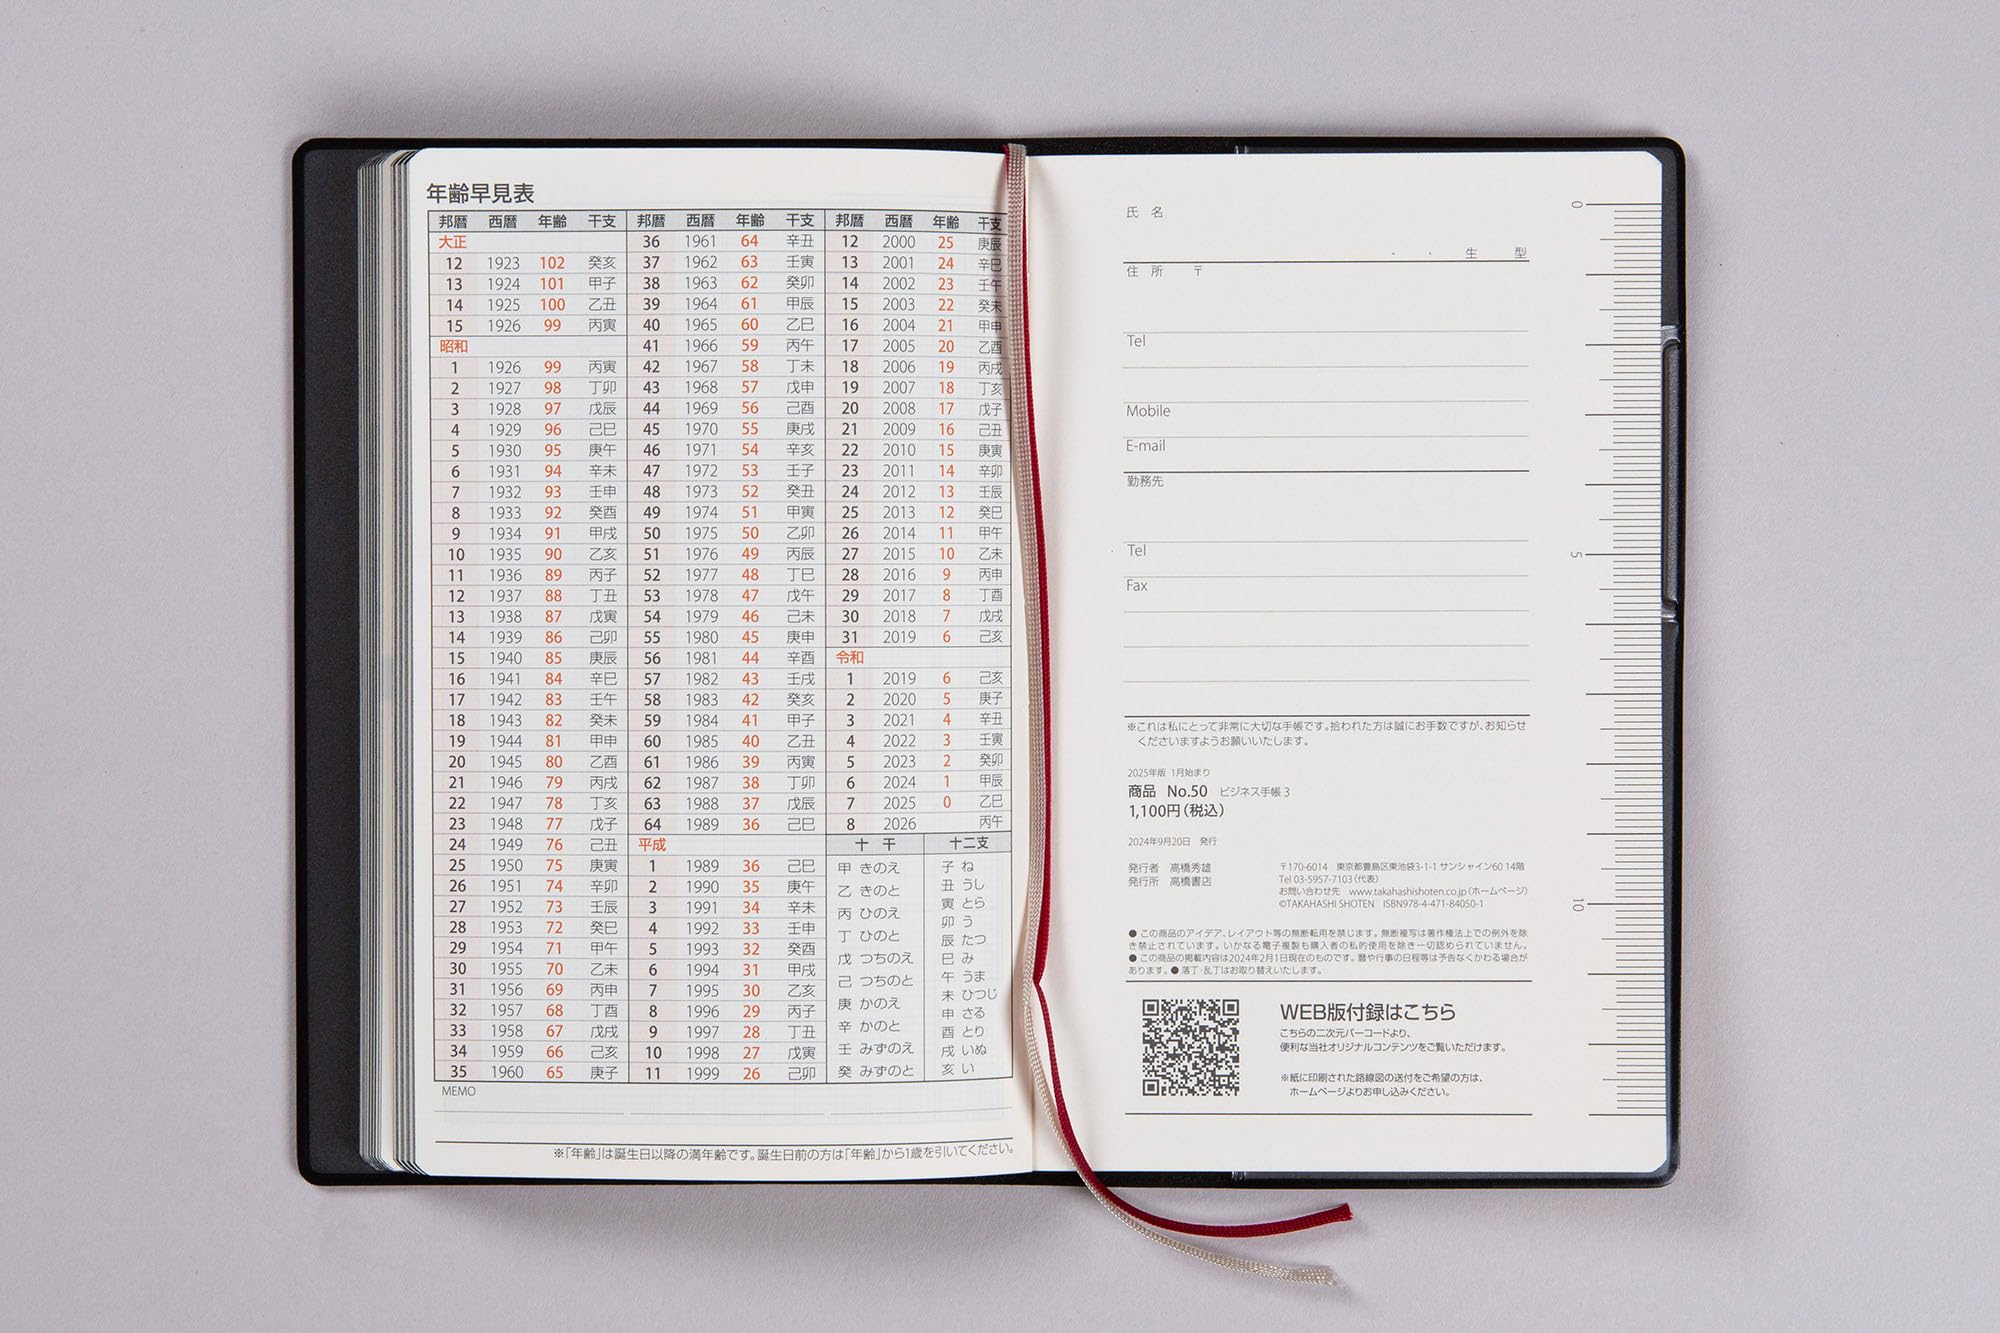 年齢早見表
邦暦 西暦 年齢 干支
大正
12 1923 102 癸亥
13 1924 101 甲子
14 1925 100 乙丑
15 1926 99 丙寅
昭和
1 1926 99 丙寅
2 1927 98 丁卯
3 1928 97 戊辰
4 1929 96 己巳
5 1930 95 庚午
6 1931 94 辛未
7 1932 93 壬申
8 1933 92 癸酉
9 1934 91 甲戌
10 1935 90 乙亥
11 1936 89 丙子
12 1937 88 丁丑
13 1938 87 戊寅
14 1939 86 己卯
15 1940 85 庚辰
16 1941 84 辛巳
17 1942 83 壬午
18 1943 82 癸未
19 1944 81 甲申
20 1945 80 乙酉
21 1946 79 丙戌
22 1947 78 丁亥
23 1948 77 戊子
24 1949 76 己丑
25 1950 75 庚寅
26 1951 74 辛卯
27 1952 73 壬辰
28 1953 72 癸巳
29 1954 71 甲午
30 1955 70 乙未
31 1956 69 丙申
32 1957 68 丁酉
33 1958 67 戊戌
34 1959 66 己亥
35 1960 65 庚子
邦暦 西暦 年齢 干支
36 1961 64 辛丑
37 1962 63 壬寅
38 1963 62 癸卯
39 1964 61 甲辰
40 1965 60 乙巳
41 1966 59 丙午
42 1967 58 丁未
43 1968 57 戊申
44 1969 56 己酉
45 1970 55 庚戌
46 1971 54 辛亥
47 1972 53 壬子
48 1973 52 癸丑
49 1974 51 甲寅
50 1975 50 乙卯
51 1976 49 丙辰
52 1977 48 丁巳
53 1978 47 戊午
54 1979 46 己未
55 1980 45 庚申
56 1981 44 辛酉
57 1982 43 壬戌
58 1983 42 癸亥
59 1984 41 甲子
60 1985 40 乙丑
61 1986 39 丙寅
62 1987 38 丁卯
63 1988 37 戊辰
64 1989 36 己巳
平成
1 1989 36 己巳
2 1990 35 庚午
3 1991 34 辛未
4 1992 33 壬申
5 1993 32 癸酉
6 1994 31 甲戌
7 1995 30 乙亥
8 1996 29 丙子
9 1997 28 丁丑
10 1998 27 戊寅
11 1999 26 己卯
邦暦 西暦 年齢 干支
12 2000 25 庚辰
13 2001 24 辛巳
14 2002 23 壬午
15 2003 22 癸未
16 2004 21 甲申
17 2005 20 乙酉
18 2006 19 丙戌
19 2007 18 丁亥
20 2008 17 戊子
21 2009 16 己丑
22 2010 15 庚寅
23 2011 14 辛卯
24 2012 13 壬辰
25 2013 12 癸巳
26 2014 11 甲午
27 2015 10 乙未
28 2016 9 丙申
29 2017 8 丁酉
30 2018 7 戊戌
31 2019 6 己亥
令和
1 2019 6 己亥
2 2020 5 庚子
3 2021 4 辛丑
4 2022 3 壬寅
5 2023 2 癸卯
6 2024 1 甲辰
7 2025 0 乙巳
8 2026 丙午
十 干
甲 きのえ
乙 きのと
丙 ひのえ
丁 ひのと
戊 つちのえ
己 つちのと
庚 かのえ
辛 かのと
壬 みずのえ
癸 みずのと
十二支
子 ね
丑 うし
寅 とら
卯 う
辰 たつ
巳 み
午 うま
未 ひつじ
申 さる
酉 とり
戌 いぬ
亥 い
MEMO
※「年齢」は誕生日以降の満年齢です。誕生日前の方は「年齢」から1歳を引いてください。
氏 名
・ ・ 生 型
住 所 〒
Tel
Mobile
E-mail
勤務先
Tel
Fax
※これは私にとって非常に大切な手帳です。拾われた方は誠にお手数ですが、お知らせ
くださいますようお願いいたします。
2025年版 1月始まり
商品 No.50 ビジネス手帳 3
1,100円(税込)
2024年9月20日 発行
発行者 高橋秀雄
発行所 高橋書店
〒170-6014 東京都豊島区東池袋3-1-1 サンシャイン60 14階
Tel 03-5957-7103(代表)
お問い合わせ先 www.takahashishoten.co.jp(ホームページ)
©TAKAHASHI SHOTEN ISBN978-4-471-84050-1
● この商品のアイデア、レイアウト等の無断転用を禁じます。無断複写は著作権法上での例外を除
き禁止されています。いかなる電子複製も購入者の私的使用を除き一切認められていません。
● この商品の掲載内容は2024年2月1日現在のものです。暦や行事の日程等は予告なくかわる場合が
あります。● 落丁・乱丁はお取り替えいたします。
WEB版付録はこちら
こちらの二次元バーコードより、
便利な当社オリジナルコンテンツをご覧いただけます。
※紙に印刷された路線図の送付をご希望の方は、
ホームページよりお申し込みください。
0
5
10